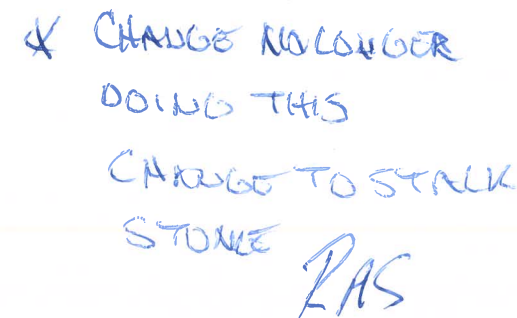 * CHANGE NO LONGER
DOING THIS
CHANGE TO STALK
STONE
RAS